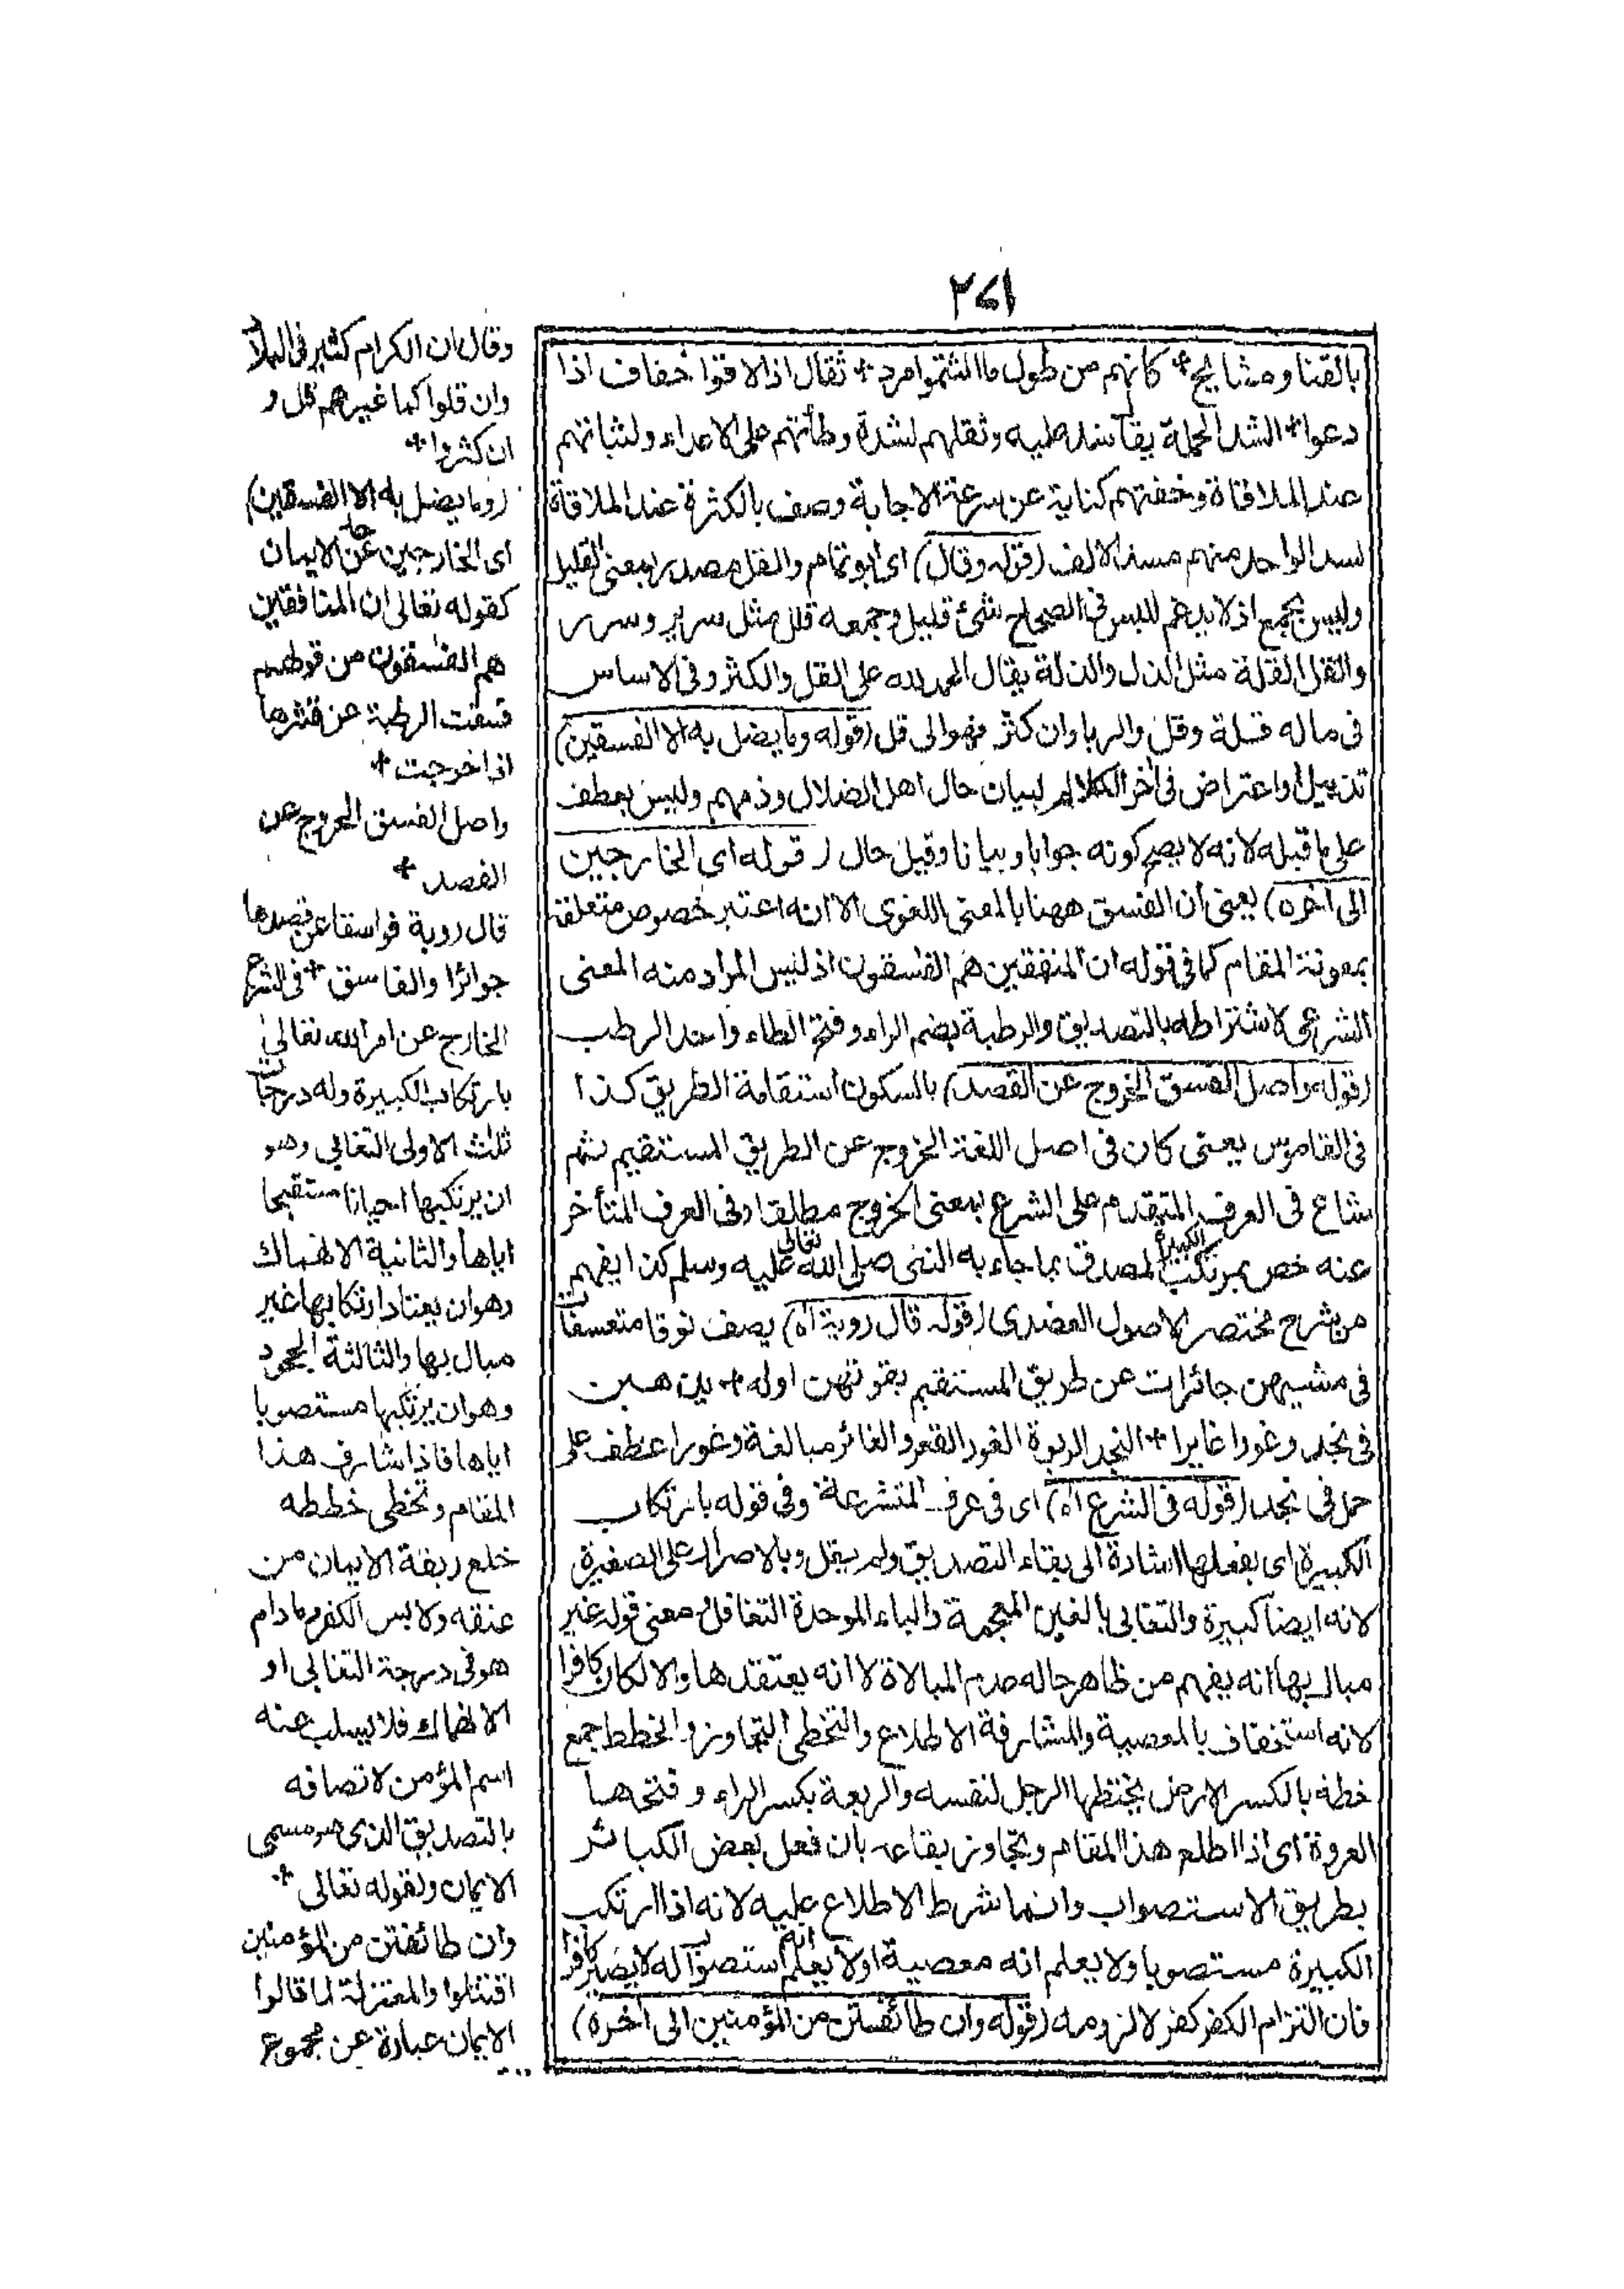 ٢٧١
بالقنا ومشايخ * كانهم من طول ما التثموا مرد * ثقال اذا لاقوا خفاف اذا
دعوا * الشد الحملة يقال شد عليه وثقلهم لشدة وطأتهم على الاعداء ولثباتهم
عند الملاقاة وخفتهم كناية عن سرعة الاجابة وصف بالكثرة عند الملاقاة
لسد الواحد منهم مسد الالف (قوله وقال) اى ابو تمام والقل مصدر بمعنى القليل
وليس بجمع اذ لا يدغم للبس فى الصحاح شئ قليل وجمعه قلل مثل سرير وسرر
والقل القلة مثل الذل والذلة يقال الحمد لله على القل والكثر وفى الاساس
فى ماله قلة وقل والربا وان كثر فهو الى قل (قوله وما يضل به الا الفسقين)
تذييل او اعتراض فى اخر الكلام لبيان حال اهل الضلال وذمهم وليس بعطف
على ما قبله لانه لا يصح كونه جوابا وبيانا وقيل حال (قوله اى الخارجين
الى اخره) يعنى ان الفسق ههنا بالمعنى اللغوى الا انه اعتبر خصوص متعلقة
بمعونة المقام كما فى قوله ان المنفقين هم الفسقون اذ ليس المراد منه المعنى
الشرعى لاشتراطه بالتصديق والرطبة بضم الراء وفتح الطاء واحد الرطب
(قوله واصل الفسق الخروج عن القصد) بالسكون استقامة الطريق كذا
فى القاموس يعنى كان فى اصل اللغة الخروج عن الطريق المستقيم ثم
شاع فى العرف المتقدم على الشرع بمعنى الخروج مطلقا وفى العرف المتأخر
عنه خص بمرتكب الكبيرة المصدق بما جاء به النبى صلى الله تعالى عليه وسلم كذا يفهم
من شرح مختصر الاصول العضدى (قوله قال روبة اه) يصف نوقا متعسفات
فى مشيهن جائرات عن طريق المستقيم بقوتهن اوله * يذهبن
فى نجد وغورا غايرا * النجد الربوة الغور القعر والغائر مبالغة وغورا عطف على
محل فى نجد (قوله فى الشرع اه) اى فى عرف المتشرعة وفى قوله بارتكاب
الكبيرة اى بفعلها اشارة الى بقاء التصديق ولم يقل وبالاصرار على الصغيرة
لانه ايضا كبيرة والتغابى بالغين المعجمة والباء الموحدة التغافل ومعنى قوله غير
مبال بها انه يفهم من ظاهر حاله عدم المبالاة لا انه يعتقدها والا لكان كافرا
لانه استخفاف بالمعصية والمشارفة الاطلاع والتخطى التجاوز والخطط جمع
خطة بالكسر الارض يختطها الرجل لنفسه والربقة بكسر الراء وفتحها
العروة اى اذا اطلع هذا المقام وتجاوز بقاعه بان فعل بعض الكبائر
بطريق الاستصواب وانما شرط الاطلاع عليه لانه اذا ارتكب
الكبيرة مستصوبا ولا يعلم انه معصية او لا يعلم انه استصواب له لا يصير كافرا
فان التزام الكفر كفر لا لزومه (قوله وان طائفتن من المؤمنين الى اخره)
وقال ان الكرام كثير فى البلاد
وان قلوا كما غيرهم قل و
ان كثروا *
(وما يضل به الا الفسقين)
اى الخارجين عن حد الايمان
كقوله تعالى ان المنافقين
هم الفسقون من قولهم
فسقت الرطبة عن قشرها
اذا خرجت *
واصل الفسق الخروج عن
القصد *
قال روبة فواسقا عن قصدها
جوائرا والفاسق * فى الشرع
الخارج عن امر الله تعالى
بارتكاب الكبيرة وله درجات
ثلث الاولى التغابى وهو
ان يرتكبها احيانا مستقبحا
اياها والثانية الانهماك
وهو ان يعتاد ارتكابها غير
مبال بها والثالثة الجحود
وهو ان يرتكبها مستصوبا
اياها فاذا شارف هذا
المقام وتخطى خططه
خلع ربقة الايمان من
عنقه ولابس الكفر وما دام
هو فى درجة التغابى او
الانهماك فلا يسلب عنه
اسم المؤمن لاتصافه
بالتصديق الذى هو مسمى
الايمان ولقوله تعالى *
وان طائفتن من المؤمنين
اقتتلوا والمعتزلة لما قالوا
الايمان عبارة عن مجموع